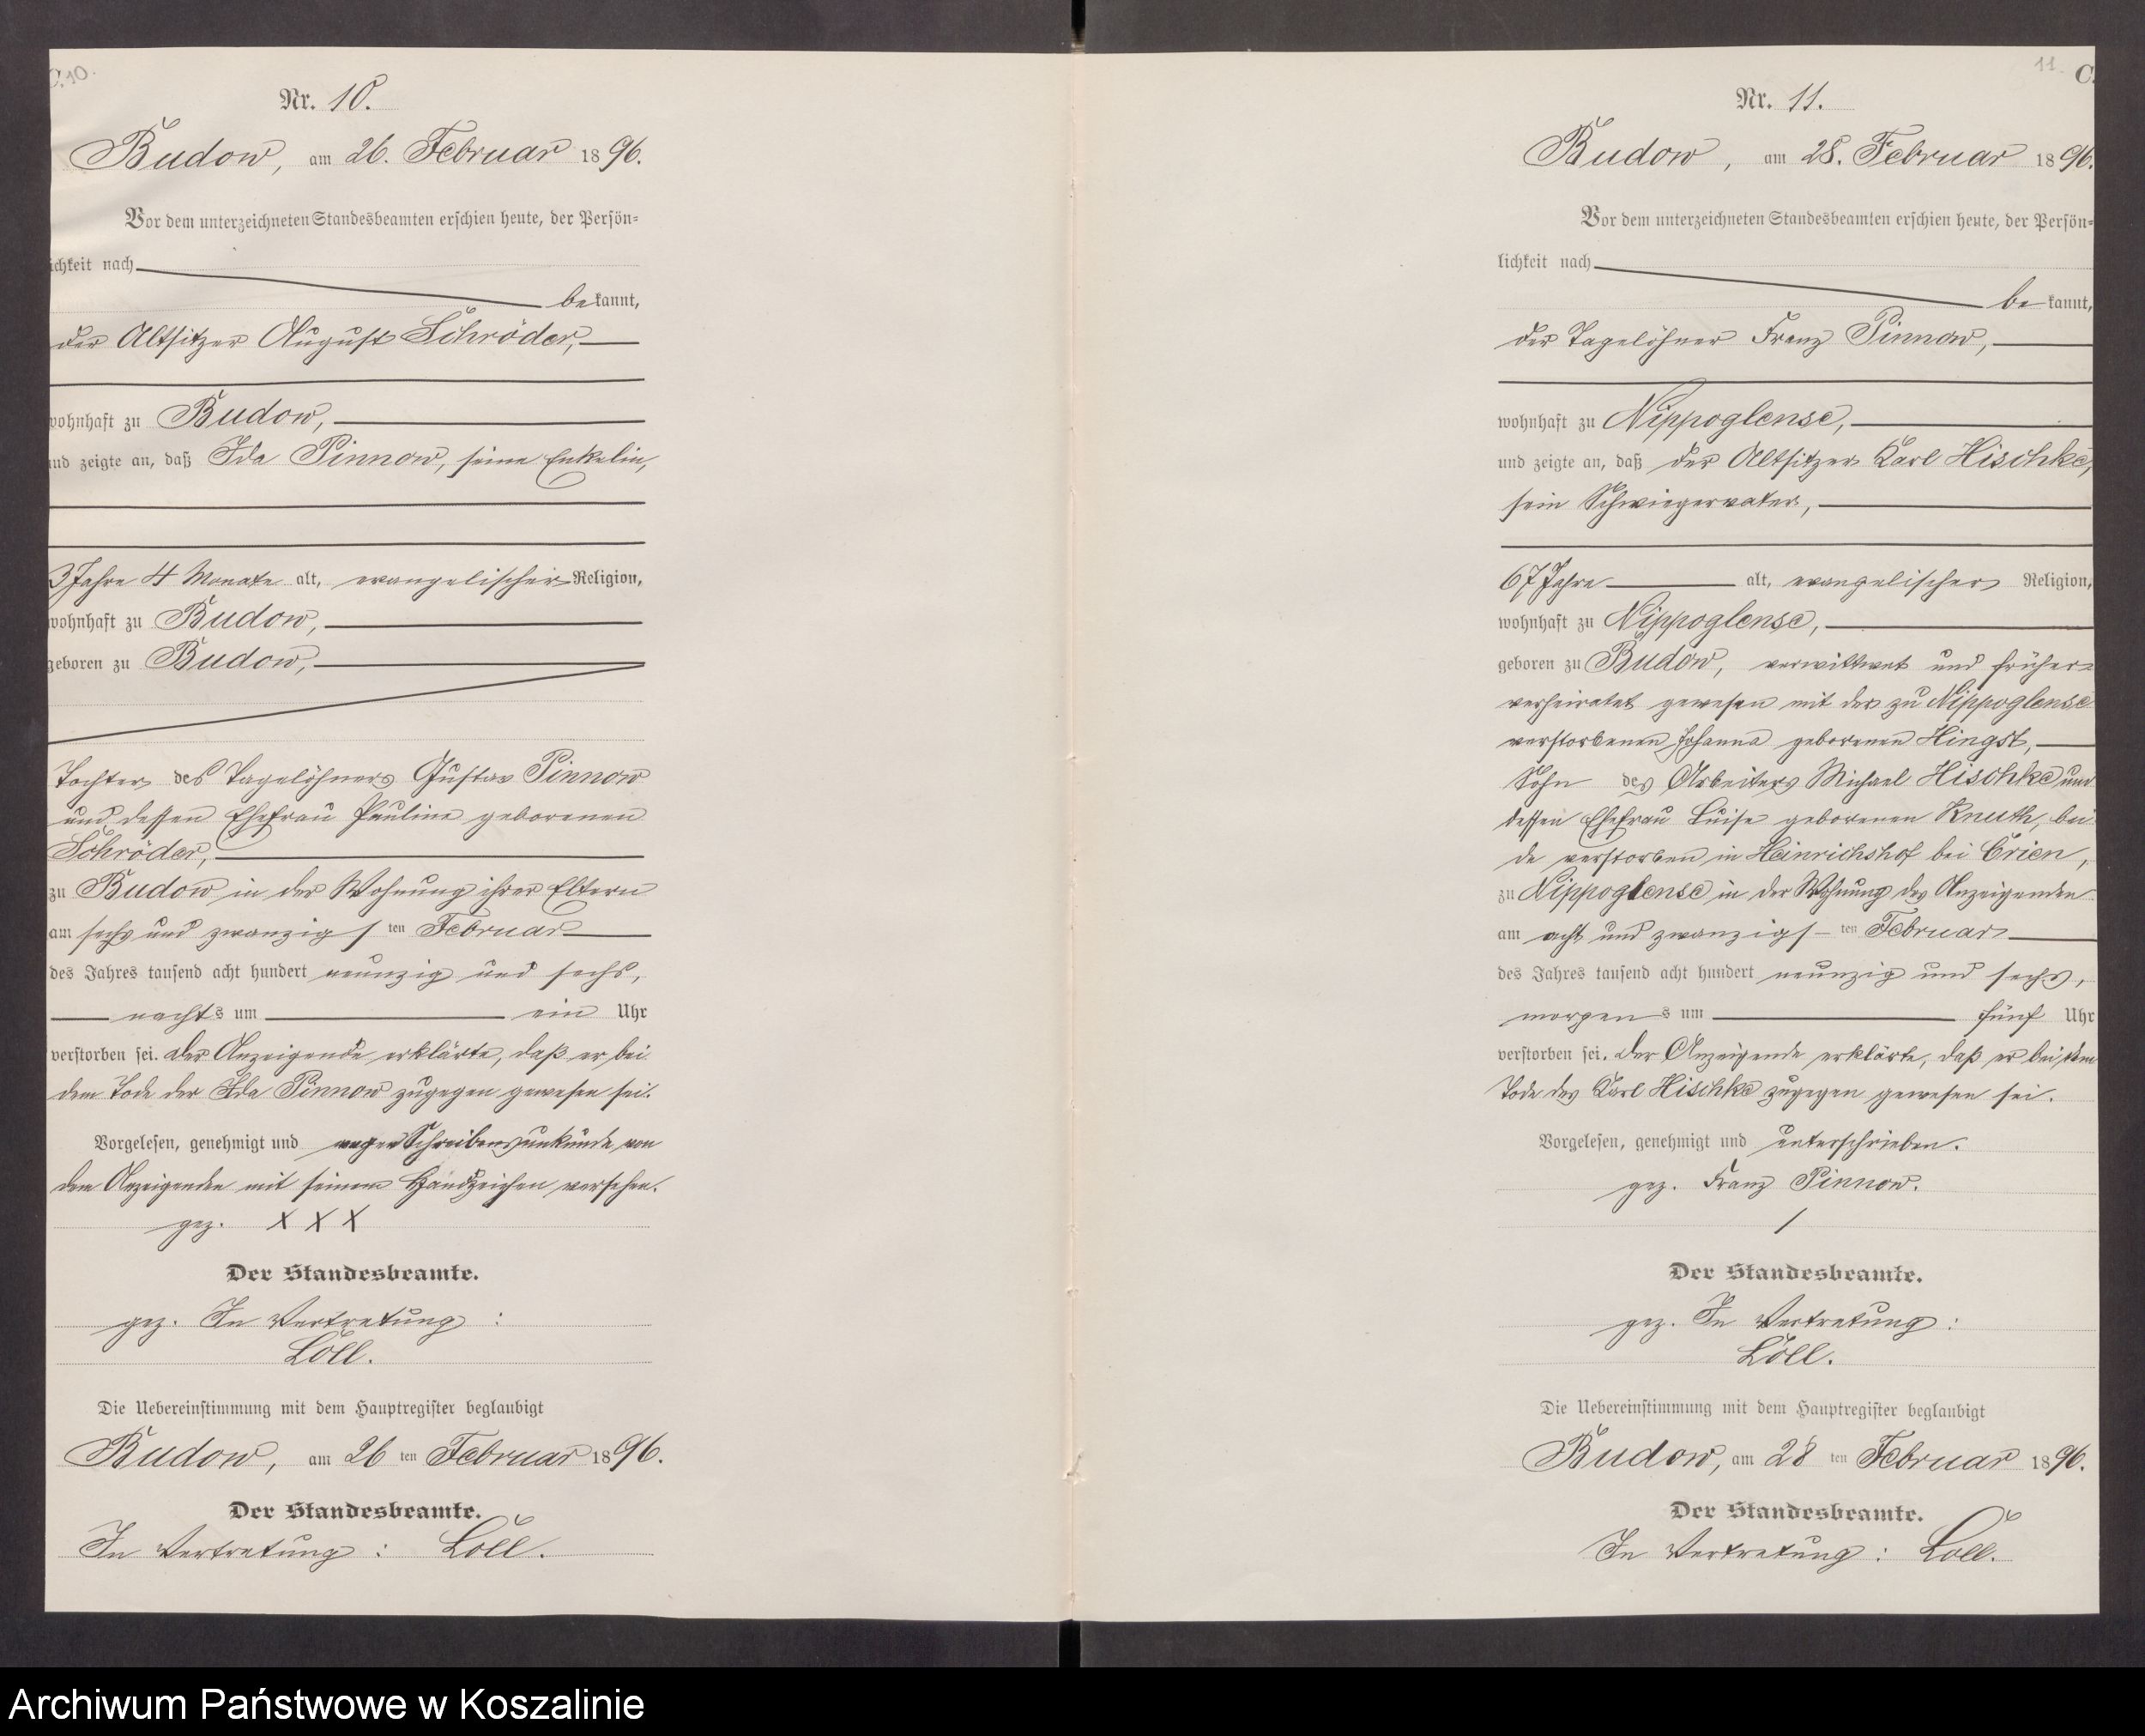 C. 10.
Nr. 10.
Budow, am 26. Februar 1896.
Vor dem unterzeichneten Standesbeamten erschien heute, der Persön=
ichkeit nach
be kannt,
der Altsitzer August Schröder,
wohnhaft zu Budow,
und zeigte an, daß Ida Pinnow, seine Enkelin,
3 Jahre 4 Monate alt, evangelischer Religion,
wohnhaft zu Budow,
geboren zu Budow,
Tochter des Tagelöhners Gustav Pinnow
und dessen Ehefrau Pauline geborenen
Schröder,
zu Budow in der Wohnung ihrer Eltern
am sechs und zwanzigs ten Februar
des Jahres tausend acht hundert neunzig und sechs,
nachts um ein Uhr
verstorben sei. Der Anzeigende erklärte, daß er bei
dem Tode der Ida Pinnow zugegen gewesen sei.
Vorgelesen, genehmigt und wegen Schreibensunkunde von
dem Anzeigenden mit seinem Handzeichen versehen.
gez. X X X
Der Standesbeamte.
gez. In Vertretung :
Löll.
Die Uebereinstimmung mit dem Hauptregister beglaubigt
Budow, am 26 ten Februar 1896.
Der Standesbeamte.
In Vertretung : Löll.
11. C.
Nr. 11.
Budow, am 28. Februar 1896.
Vor dem unterzeichneten Standesbeamten erschien heute, der Persön=
lichkeit nach
be kannt,
der Tagelöhner Franz Pinnow,
wohnhaft zu Nippoglense,
und zeigte an, daß der Altsitzer Karl Hischke,
sein Schwiegervater,
67 Jahre alt, evangelischer Religion,
wohnhaft zu Nippoglense,
geboren zu Budow, verwittwet und früher
verheiratet gewesen mit der zu Nippoglense
verstorbenen Johanna geborenen Hingst,
Sohn des Arbeiters Michael Hischke und
dessen Ehefrau Luise geborenen Knuth, bei
de verstorben in Heinrichshof bei Crien,
zu Nippoglense in der Wohnung des Anzeigenden
am acht und zwanzigs ten Februar
des Jahres tausend acht hundert neunzig und sechs,
morgens um fünf Uhr
verstorben sei. Der Anzeigende erklärte, daß er bei dem
Tode des Karl Hischke zugegen gewesen sei.
Vorgelesen, genehmigt und unterschrieben.
gez. Franz Pinnow.
Der Standesbeamte.
gez. In Vertretung :
Löll.
Die Uebereinstimmung mit dem Hauptregister beglaubigt
Budow, am 28 ten Februar 1896.
Der Standesbeamte.
In Vertretung : Löll.
Archiwum Państwowe w Koszalinie